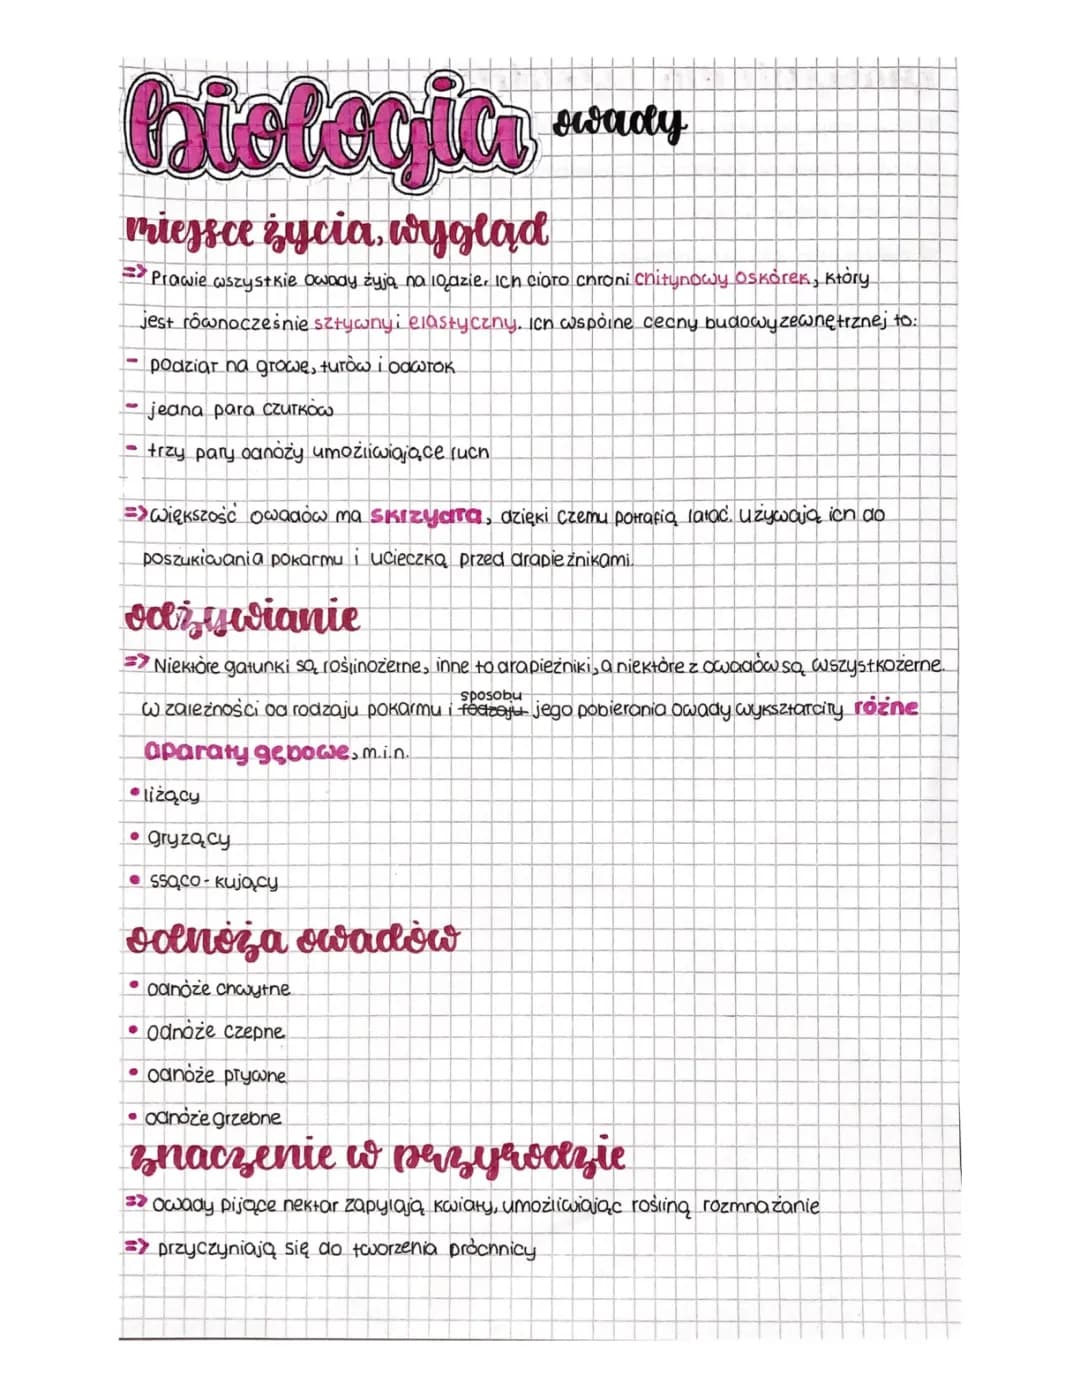 biologia owady
miejsce życia, wygląd
=> Prawie wszystkie owady żyją na lądzie. Ich ciało chroni chitynowy oskórek, który
jest równocześnie sztywny i elastyczny. Ich wspólne cechy budowy zewnętrznej to:
- podział na głowę, tułów i odwłok
- jedna para czułków
- trzy pary odnóży umożliwiające ruch
=> większość owadów ma skrzydła, dzięki czemu potrafią latać. używają ich do
poszukiwania pokarmu i ucieczką przed drapieżnikami.
odżywianie
=> Niektóre gatunki są roślinożerne, inne to drapieżniki, a niektóre z owadów są wszystkożerne.
w zależności od rodzaju pokarmu i rodzaju sposobu jego pobierania owady wykształciły różne
aparaty gębowe, m.i.n.
• liżący
• gryzący
• ssąco - kłujący
odnóża owadów
• odnóże chwytne
• odnóże czepne
• odnóże pływne
• odnóże grzebne
znaczenie w przyrodzie
=> owady pijące nektar zapylają kwiaty, umożliwiając rośliną rozmnażanie
=> przyczyniają się do tworzenia próchnicy